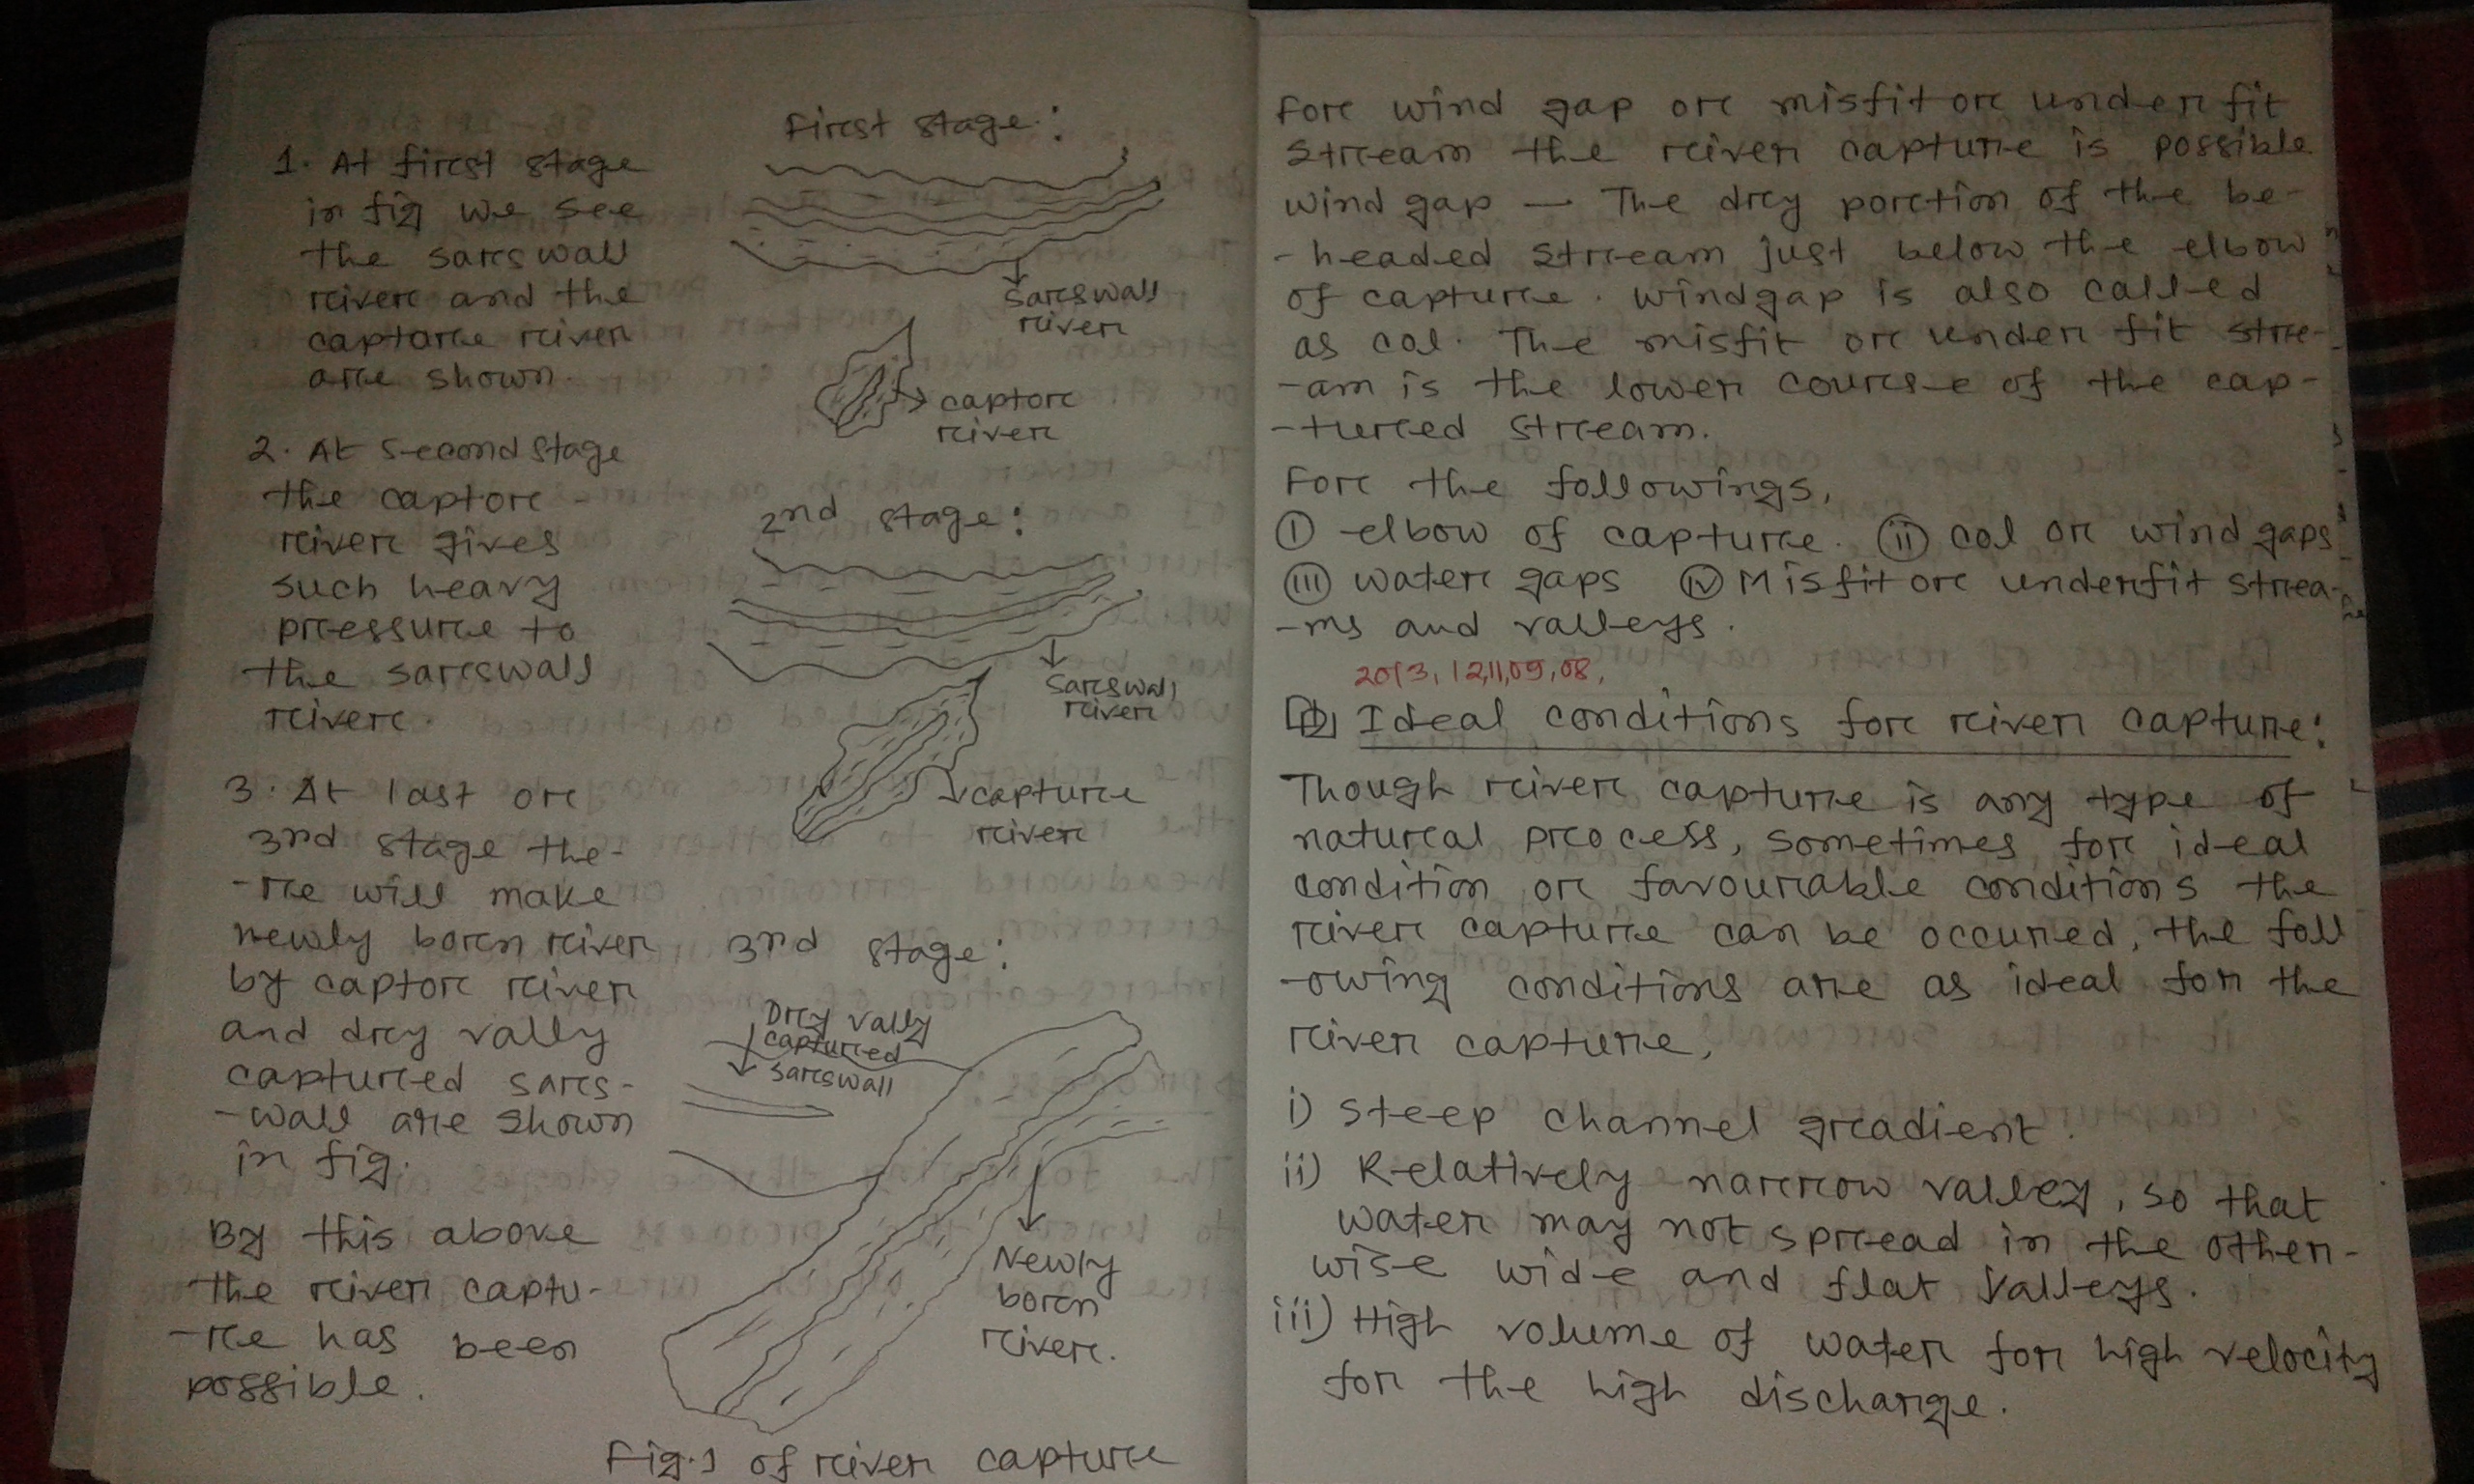 First stage:
1. At first stage
in fig we see
the sarswall
river and the
captare river
are shown.
sarswall
river
captor
river
2. At second stage
the captor -
river gives
such heavy
pressure to
the sarswall
river.
2nd stage:
sarswall
river
capture
river
3. At last or
3rd stage the-
-re will make
newly born river
by captor river
and dry vally
captured sars-
-wall are shown
in fig.
3rd stage:
Dry vally
captured
sarswall
Newly
born
river.
By this above
the river captu-
-re has been
possible.
Fig.1 of river capture
For wind gap or misfit or under fit
stream the river capture is possible
wind gap — The dry portion of the be-
-headed stream just below the elbow
of capture. windgap is also called
as col. The misfit or under fit stre-
-am is the lower course of the cap-
-tured stream.
For the followings,
(i) elbow of capture. (ii) col or wind gaps
(iii) water gaps (iv) Misfit or underfit strea-
-ms and valleys.
2013, 12,11,09,08,
Ideal conditions for river capture:
Though river capture is any type of
natural process, sometimes for ideal
condition or favourable conditions the
river capture can be occured, the foll
-owing conditions are as ideal for the
river capture,
i) steep channel gradient.
ii) Relatively narrow valley, so that
water may not spread in the other-
wise wide and flat valleys.
iii) High volume of water for high velocity
for the high discharge.